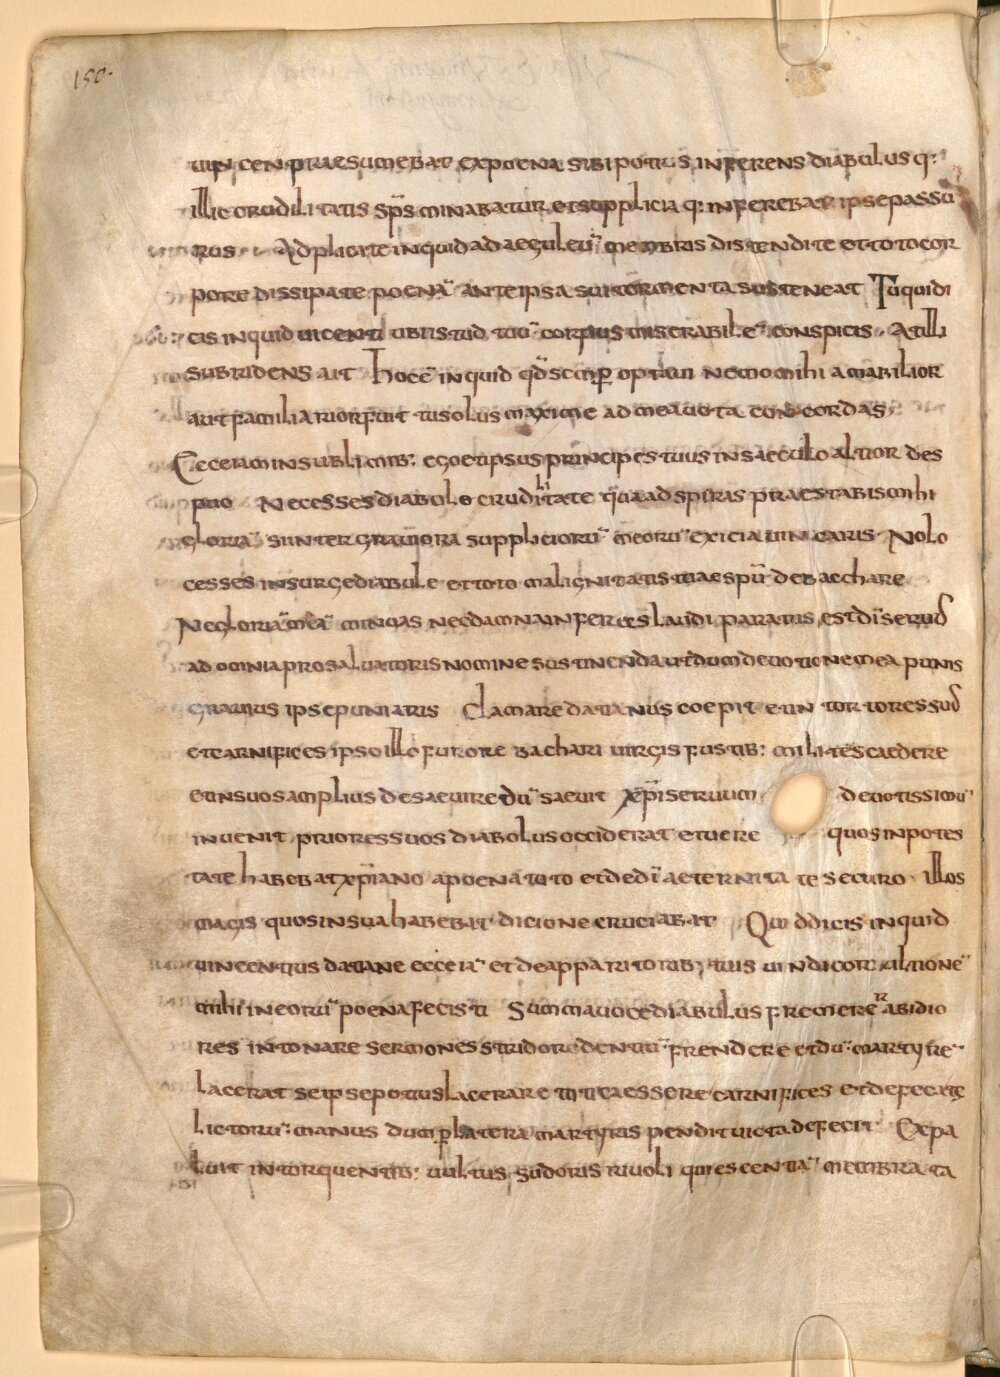 150.
uin cen praesumebat expoena sibi potius inferens diabulus q:
illic crudilitatis sps minabatur et supplicia q: inferebat ipse passu
rus Adplicate inquid ad aeguleū membris distendite et toto cor
pore dissipate poenā ante ipsa sui tormenta susteneat Tu quidi
cis inquid uicenti ubi istud tuū corpus miserabile conspicis At illi
subridens ait hoc ē inquid qd semp optaui nemo mihi amabilior
aut familiarior fuit tu solus maxime ad mea uota concordas
Ecce iam in sublimib: ego et ipsus principes tuus in saeculo altior des
picio Ne cesses diabole crudilitate qua adspiras praestabis mihi
gloriā si inter grauiora suppliciorū meorū exicia uincaris Nolo
cesses insurge diabule et toto malignitatis tuae spū debacchare
Ne gloriā meā minuas nec damna inferas laudi paratus est di seruus
ad omnia pro saluatoris nomine sustinenda ut dum deuotionem ea punis
grauius ipse puniaris Clamare datianus coepit et in tortores suos
et carnifices ipso illo furore bachari uirgis fustib: milites caedere
et in suos amplius desaeuire dū saeuit xpi seruum deuotissimū
inuenit priores suos diabolus occiderat et uere quos in potes
tate habebat xpiano a poena toto et de di aeternitate securo illos
magis quos in sua habebat dicione cruciabat Quid dicis inquid
uincentius datane ecce iā et de apparitorib: tuis uindicor ultionē
mihi in eorū poena fecisti Summa uoce diabulus fremere rabidio
res intonare sermones stridore dentiū frendere et dū martyrē
lacerat se ipse potius lacerare titi cessere carnifices et defecate
lictorū manus dum p latera martyris pendit uicta defecit Expa
luit in torquentib: uultus sudoris riuoli quiescentiā membra ta